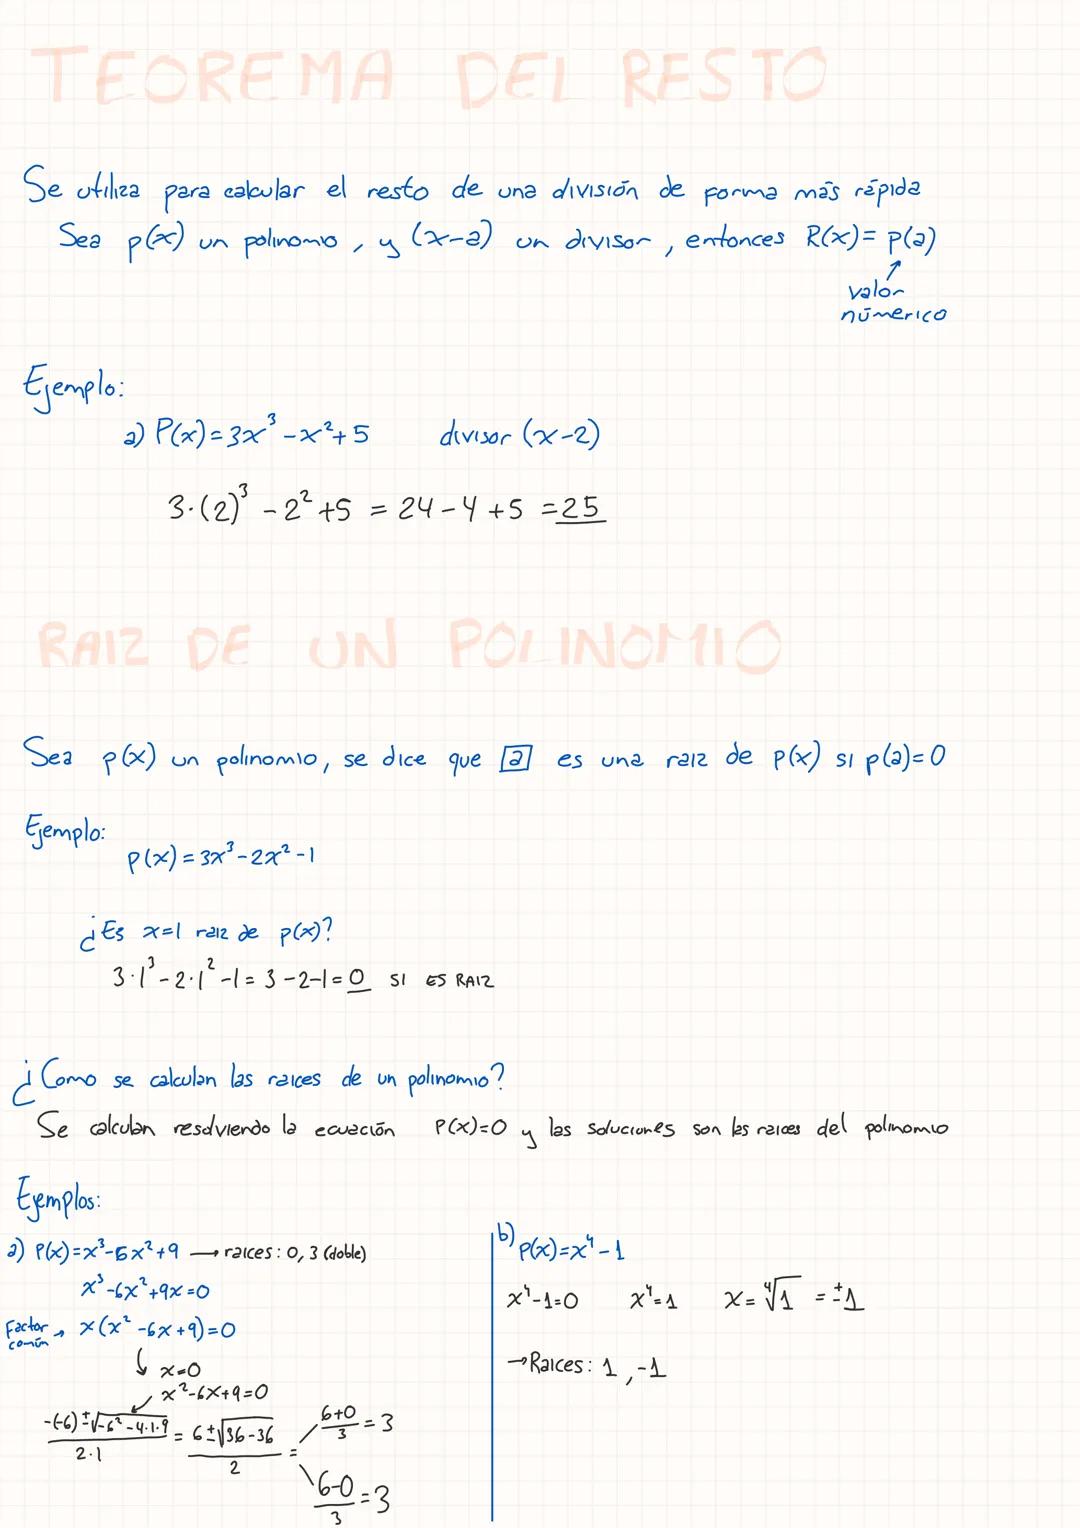 TEOREMA DEL RESTO
Se utiliza para calcular el resto de una división de forma más rápida
Sea p(x) un polinomio, y (x-a) un divisor, entonces R(x)= p(a)
↑
valor
númerico
Ejemplo:
a) P(x)=3x³-x²+5 divisor (x-2)
3·(2)³ -2² +5 = 24-4+5 =25
RAIZ DE UN POLINOMIO
Sea p(x) un polinomio, se dice que a es una raiz de p(x) si p(a)=0
Ejemplo:
p(x)=3x³-2x²-1
¿Es x=1 raiz de p(x)?
3·1³-2·1²-1=3-2-1=0 SI ES RAIZ
¿Como se calculan las raices de un polinomio?
Se calculan resolviendo la ecuación P(x)=0 y las soluciones son las raices del polinomio
Ejemplos:
a) P(x)=x³-6x²+9 → raices: 0, 3 (doble)
x³-6x²+9x=0
Factor común → x(x²-6x+9)=0
x=0
x²-6x+9=0
-(-6)±√-6²-4·1·9 / 2·1 = 6±√36-36 / 2 =
6+0 / 3 = 3
6-0 / 3 = 3
b) p(x)=x⁴-1
x⁴-1=0 x⁴=1 x=⁴√1 = ±1
→Raices: 1, -1